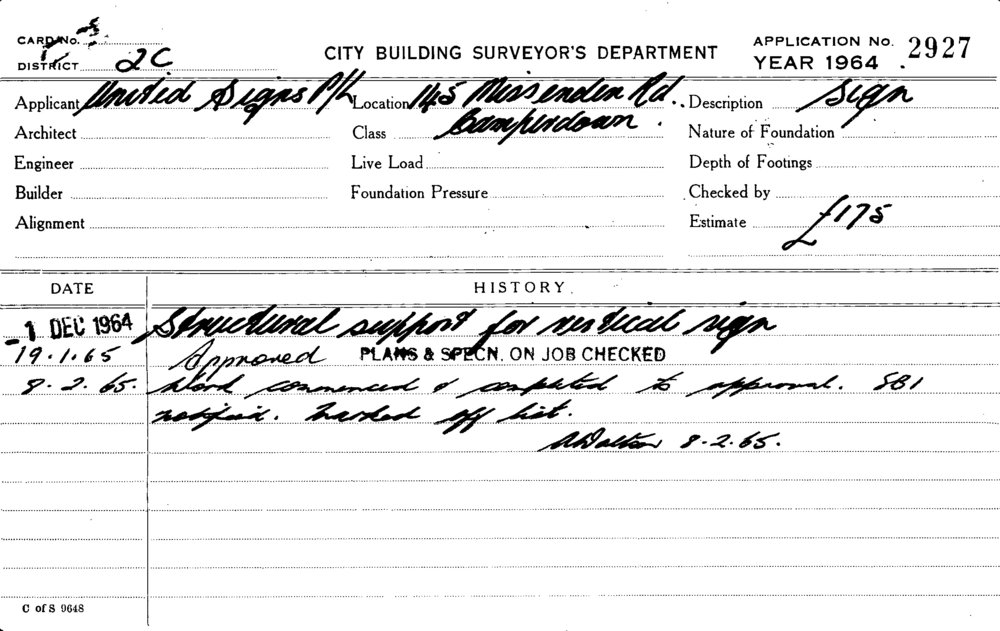 CARD No.
DISTRICT 2C
CITY BUILDING SURVEYOR'S DEPARTMENT
APPLICATION No. 2927
YEAR 1964
Applicant United Signs P/L Location 145 Missenden Rd. Description Sign
Architect Class Camperdown. Nature of Foundation
Engineer Live Load Depth of Footings
Builder Foundation Pressure Checked by
Alignment Estimate £175
DATE HISTORY
1 DEC 1964 Structural support for vertical sign
19.1.65 Approved PLANS & SPECN. ON JOB CHECKED
8.2.65. Work commenced & completed to approval. SBI
notified. Marked off list.
8.2.65.
C of S 9648